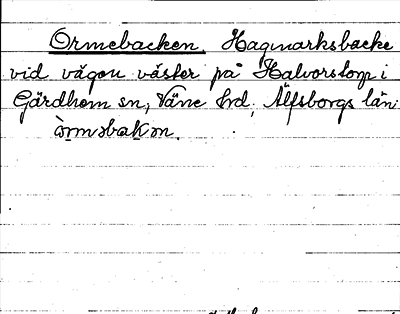 Ormebacken, Hagmarksbacke
vid vägen väster på Halvorstorp i
Gärdhem sn, Väne hd, Älfsborgs län.
òrməbakən.